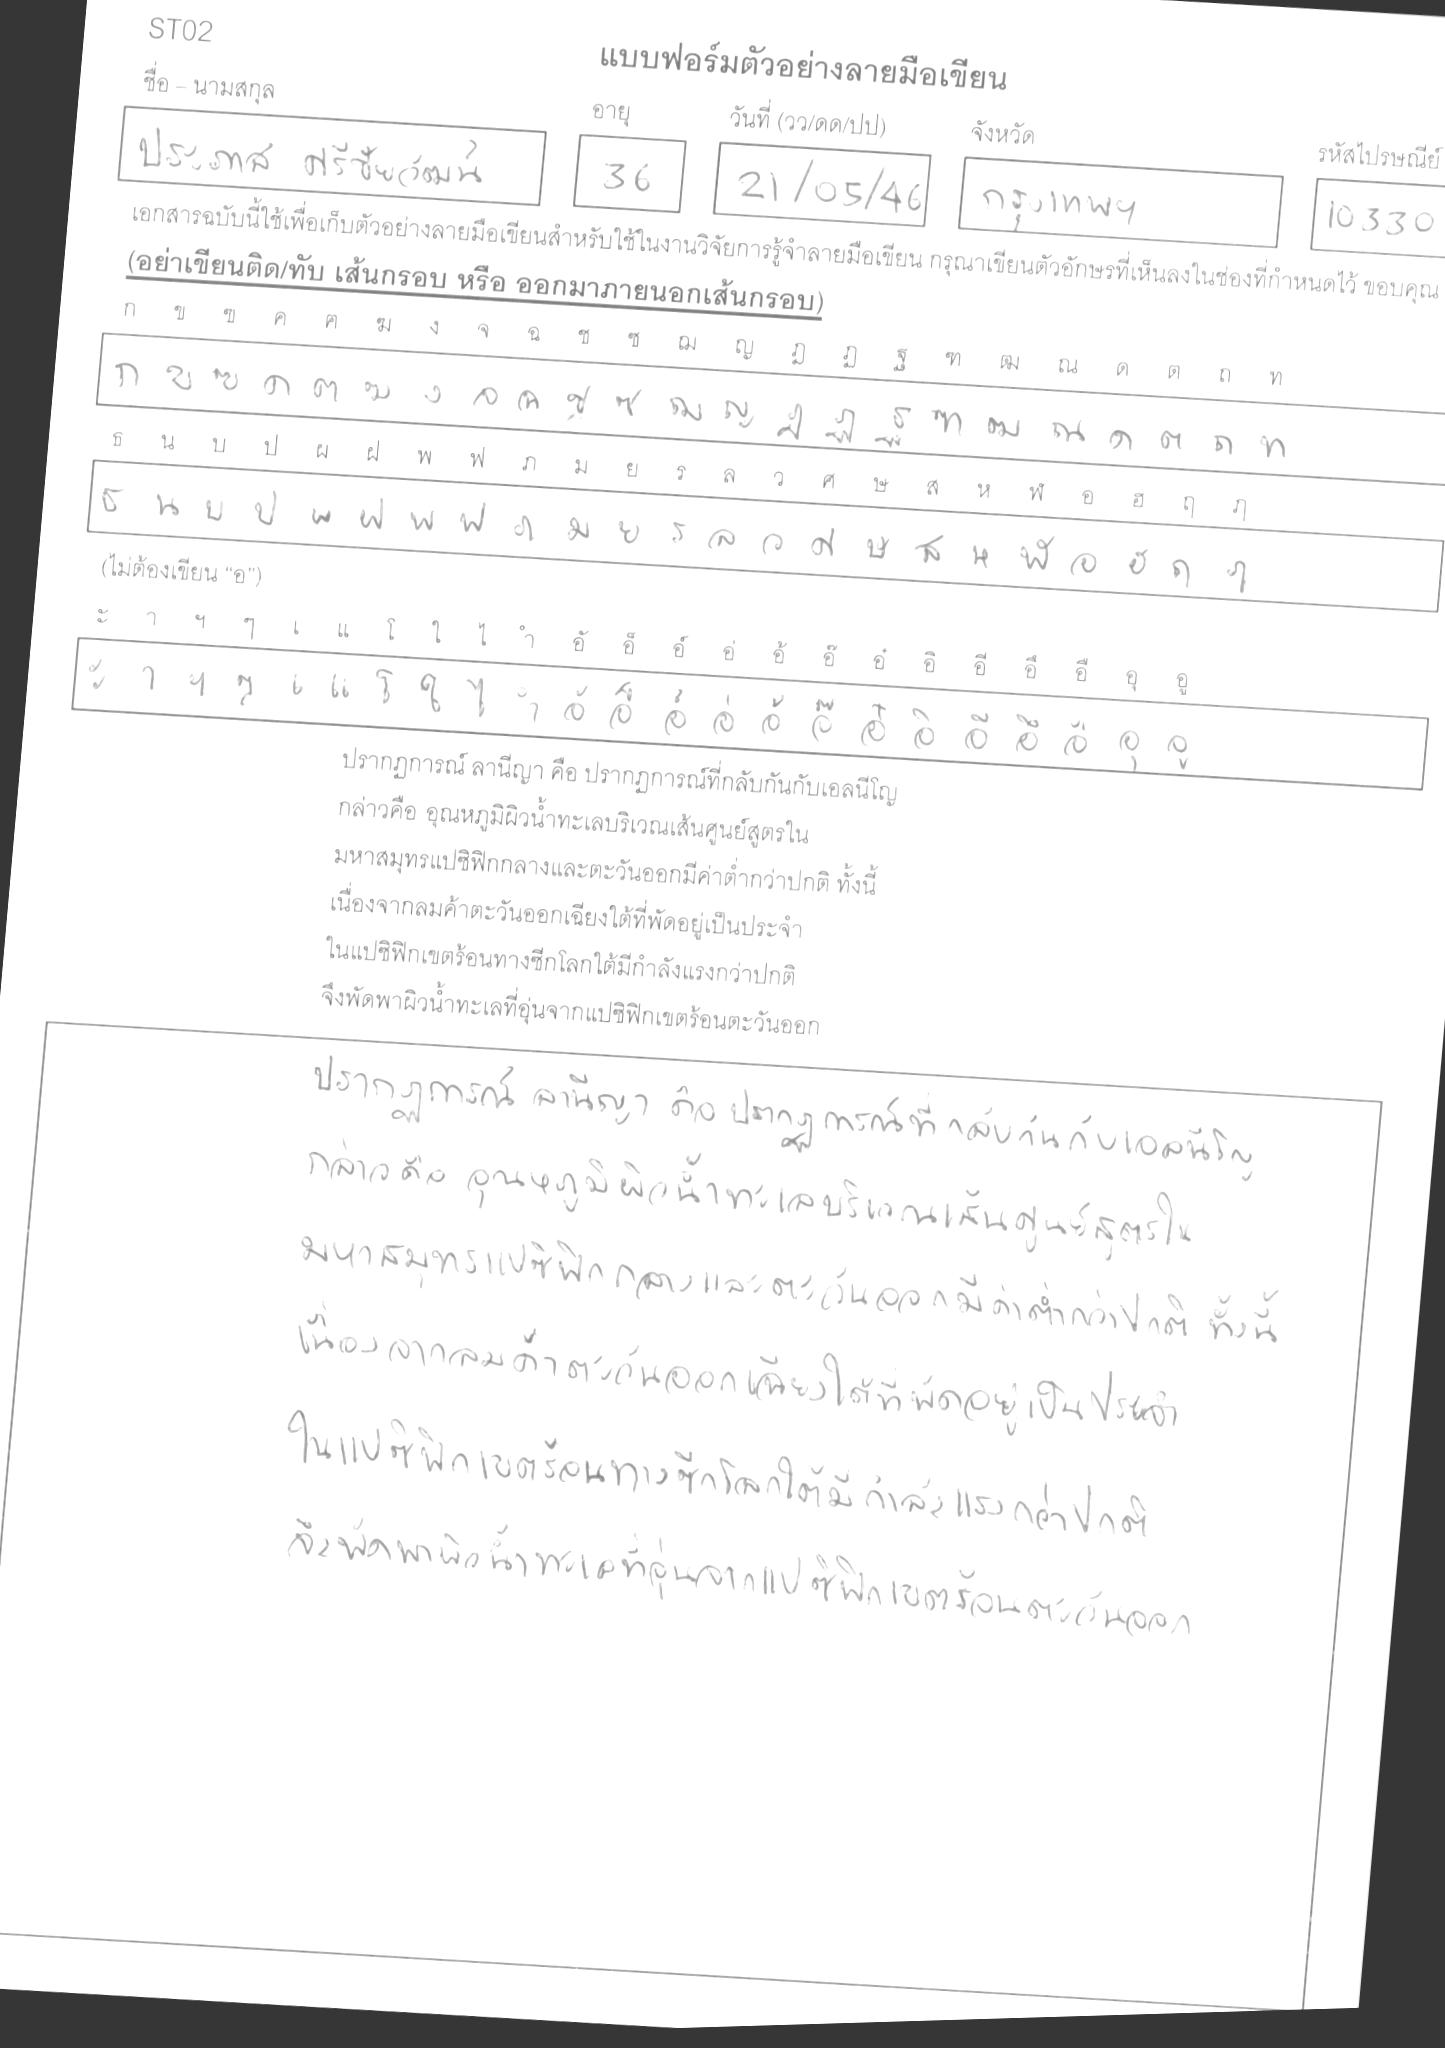 ST02
แบบฟอร์มตัวอย่างลายมือเขียน
ชื่อ – นามสกุล อายุ วันที่ (วว/ดด/ปป) จังหวัด รหัสไปรษณีย์
ประภาส ศรีชัยวัฒน์ 36 21/05/46 กรุงเทพฯ 10330
เอกสารฉบับนี้ใช้เพื่อเก็บตัวอย่างลายมือเขียนสำหรับใช้ในงานวิจัยการรู้จำลายมือเขียน กรุณาเขียนตัวอักษรที่เห็นลงในช่องที่กำหนดไว้ ขอบคุณ
(อย่าเขียนติด/ทับ เส้นกรอบ หรือ ออกมาภายนอกเส้นกรอบ)
ก ข ฃ ค ฅ ฆ ง จ ฉ ช ซ ฌ ญ ฎ ฏ ฐ ฑ ฒ ณ ด ต ถ ท
ก ข ฃ ค ฅ ฆ ง จ ฉ ช ซ ฌ ญ ฎ ฏ ฐ ฑ ฒ ณ ด ต ถ ท
ธ น บ ป ผ ฝ พ ฟ ภ ม ย ร ล ว ศ ษ ส ห ฬ อ ฮ ฤ ฦ
ธ น บ ป ผ ฝ พ ฟ ภ ม ย ร ล ว ศ ษ ส ห ฬ อ ฮ ฤ ฦ
(ไม่ต้องเขียน “อ”)
ะ า ฯ ๆ เ แ โ ใ ไ ำ อั อ็ อ์ อ่ อ้ อ๊ อ๋ อิ อี อึ อื อุ อู
ะ า ฯ ๆ เ แ โ ใ ไ ำ อั อ็ อ์ อ่ อ้ อ๊ อ๋ อิ อี อึ อื อุ อู
ปรากฏการณ์ ลานีญา คือ ปรากฏการณ์ที่กลับกันกับเอลนีโญ
กล่าวคือ อุณหภูมิผิวน้ำทะเลบริเวณเส้นศูนย์สูตรใน
มหาสมุทรแปซิฟิกกลางและตะวันออกมีค่าต่ำกว่าปกติ ทั้งนี้
เนื่องจากลมค้าตะวันออกเฉียงใต้ที่พัดอยู่เป็นประจำ
ในแปซิฟิกเขตร้อนทางซีกโลกใต้มีกำลังแรงกว่าปกติ
จึงพัดพาผิวน้ำทะเลที่อุ่นจากแปซิฟิกเขตร้อนตะวันออก
ปรากฏการณ์ ลานีญา คือ ปรากฏการณ์ที่กลับกันกับเอลนีโญ
กล่าวคือ อุณหภูมิผิวน้ำทะเลบริเวณเส้นศูนย์สูตรใน
มหาสมุทรแปซิฟิกกลางและตะวันออกมีค่าต่ำกว่าปกติ ทั้งนี้
เนื่องจากลมค้าตะวันออกเฉียงใต้ที่พัดอยู่เป็นประจำ
ในแปซิฟิกเขตร้อนทางซีกโลกใต้มีกำลังแรงกว่าปกติ
จึงพัดพาผิวน้ำทะเลที่อุ่นจากแปซิฟิกเขตร้อนตะวันออก